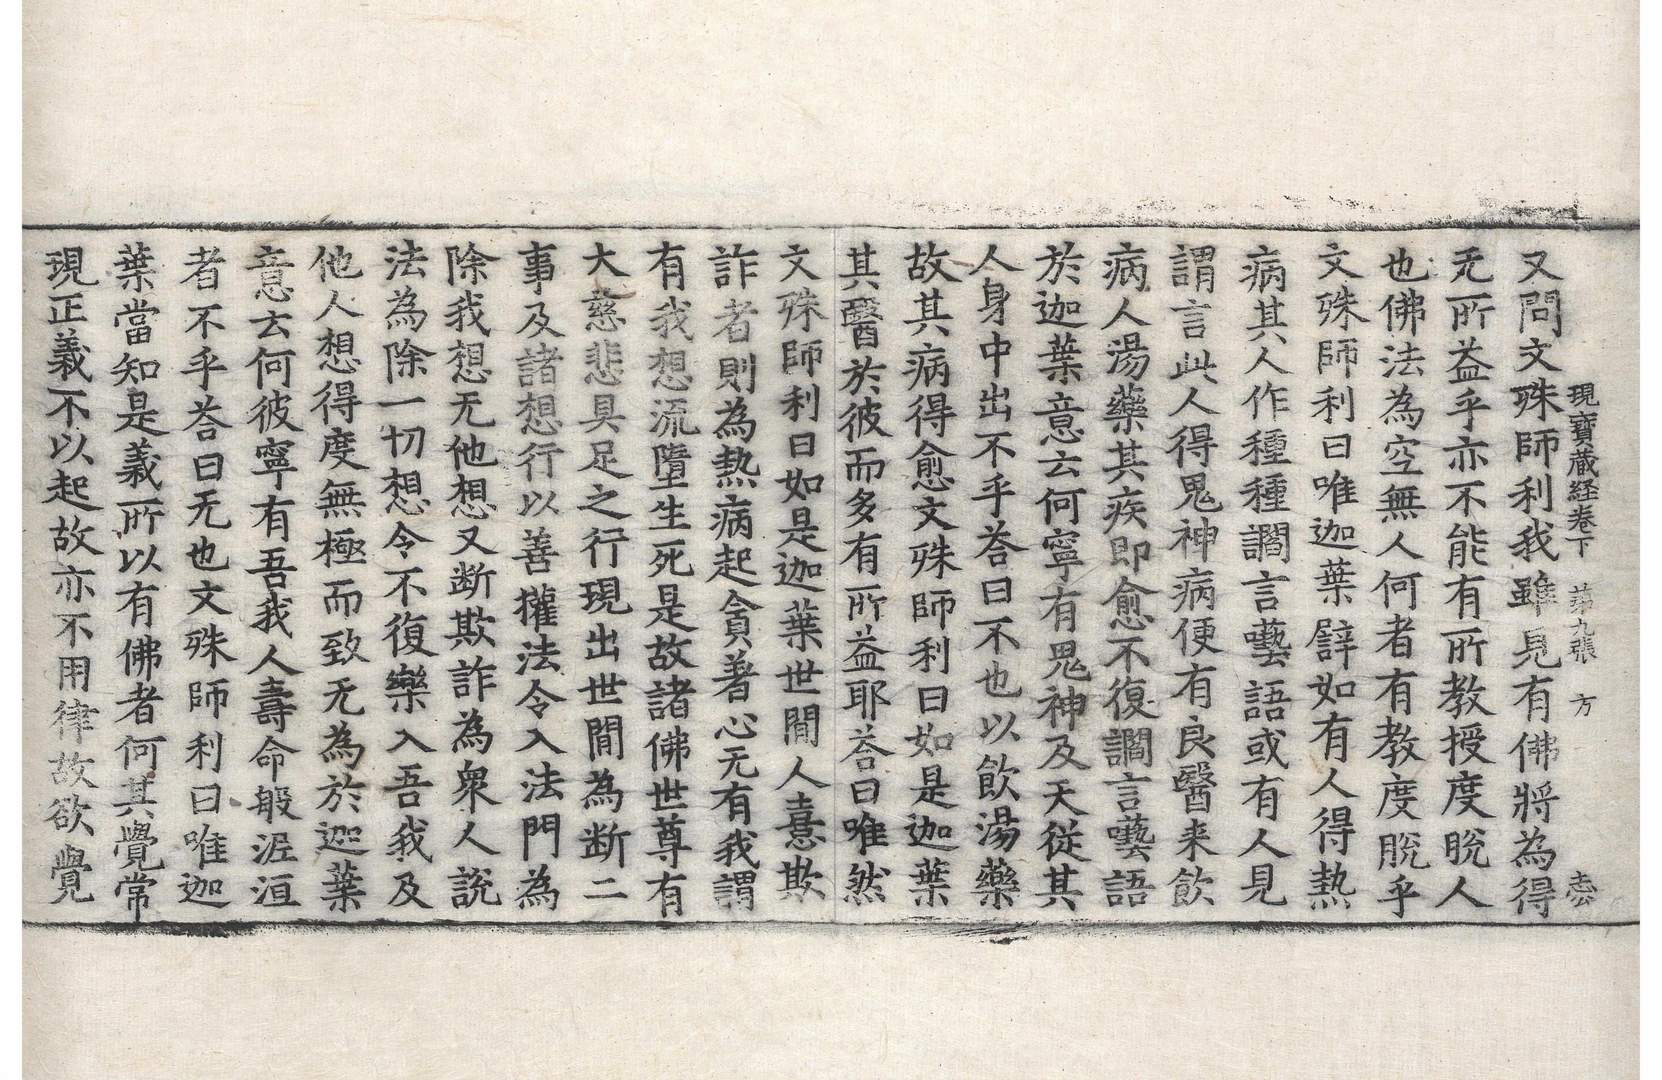 現寶蔵経卷下　第九張　方
又問文殊師利我雖見有佛將為得
无所益乎亦不能有所教授度脫人
也佛法為空無人何者有教度脫乎
文殊師利曰唯迦葉譬如有人得熱
病其人作種種讇言囈語或有人見
謂言此人得鬼神病便有良醫来飲
病人湯藥其疾即愈不復讇言囈語
於迦葉意云何寧有鬼神及天從其
人身中出不乎荅曰不也以飲湯藥
故其病得愈文殊師利曰如是迦葉
其醫於彼而多有所益耶荅曰唯然
文殊師利曰如是迦葉世間人憙欺
詐者則為熱病起貪著心无有我謂
有我想流墮生死是故諸佛世尊有
大慈悲具足之行現出世間為断二
事及諸想行以善權法令入法門為
除我想无他想又断欺詐為衆人說
法為除一切想令不復樂入吾我及
他人想得度無極而致无為於迦葉
意云何彼寧有吾我人壽命般泥洹
者不乎荅曰无也文殊師利曰唯迦
葉當知是義所以有佛者何其覺常
現正義不以起故亦不用律故欲覺